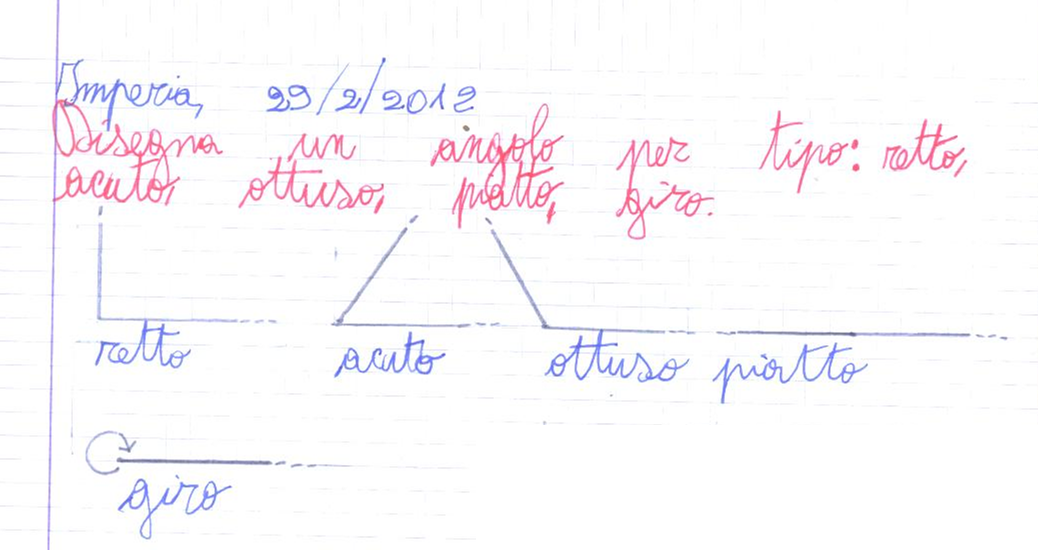 Imperia, 29/2/2012
Disegna un angolo per tipo: retto,
acuto, ottuso, piatto, giro.
retto acuto ottuso piatto
giro